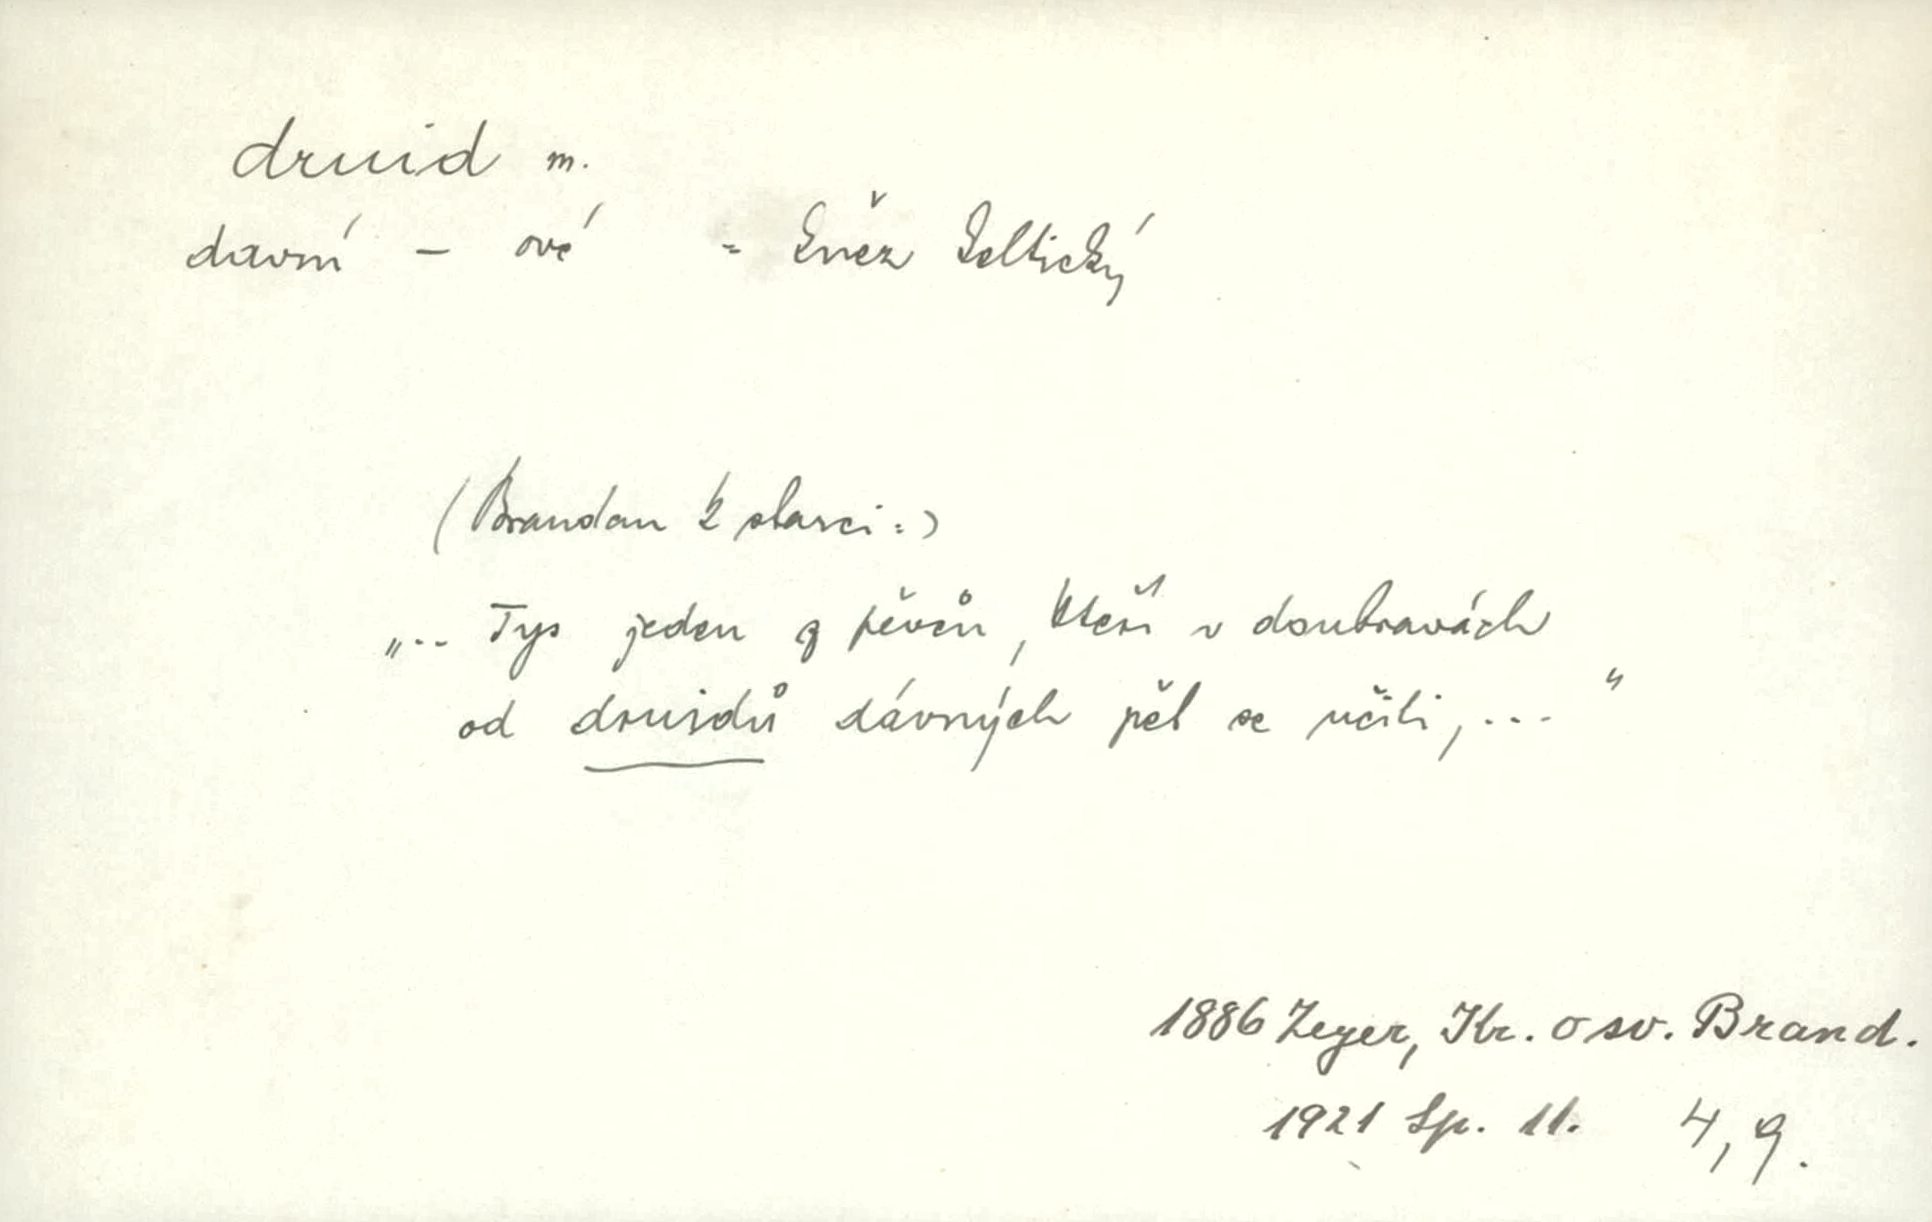 druid m.
davní – ové = kněz keltický
(Brandan k starci:)
„.. Tys jeden z pěvců, kteří v doubravách
od druidů dávných pět se učili, ..."
1886 Zeyer, Kr. o sv. Brand.
1921 Sp. 11. 4, 9.